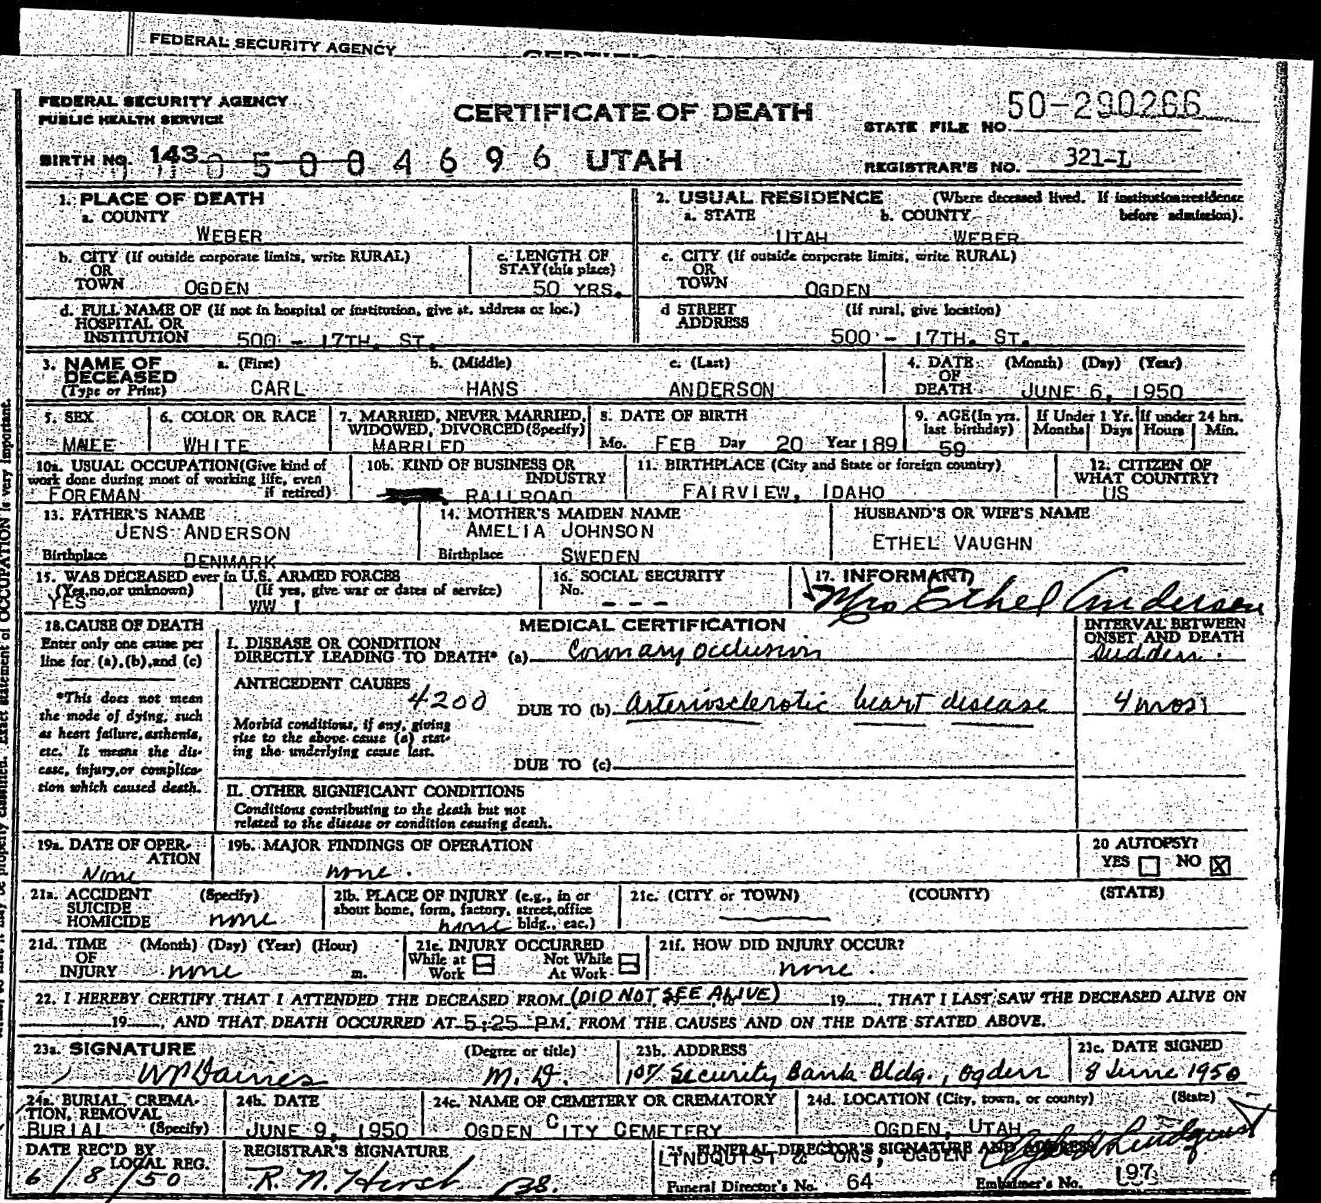 FEDERAL SECURITY AGENCY
FEDERAL SECURITY AGENCY
PUBLIC HEALTH SERVICE
CERTIFICATE OF DEATH
50-290266
STATE FILE NO.
BIRTH NO. 143 4696 UTAH
REGISTRAR'S NO. 321-L
1. PLACE OF DEATH
a. COUNTY
WEBER
2. USUAL RESIDENCE (Where deceased lived. If institution: residence before admission).
a. STATE b. COUNTY
UTAH WEBER
b. CITY (If outside corporate limits, write RURAL)
OR
TOWN OGDEN
c. LENGTH OF
STAY (this place)
50 YRS.
c. CITY (If outside corporate limits, write RURAL)
OR
TOWN OGDEN
d. FULL NAME OF (If not in hospital or institution, give st. address or loc.)
HOSPITAL OR
INSTITUTION 500 - 17TH. ST.
d STREET (If rural, give location)
ADDRESS
500 - 17TH. ST.
3. NAME OF a. (First) b. (Middle) c. (Last)
DECEASED
(Type or Print) CARL HANS ANDERSON
4. DATE (Month) (Day) (Year)
OF
DEATH JUNE 6, 1950
5. SEX
MALEE
6. COLOR OR RACE
WHITE
7. MARRIED, NEVER MARRIED,
WIDOWED, DIVORCED (Specify)
MARRIED
8. DATE OF BIRTH
Mo. FEB Day 20 Year 1891
9. AGE (In yrs.
last birthday)
59
If Under 1 Yr.
Months Days
If under 24 hrs.
Hours Min.
10a. USUAL OCCUPATION (Give kind of
work done during most of working life, even
if retired)
FOREMAN
10b. KIND OF BUSINESS OR
INDUSTRY
RAILROAD
11. BIRTHPLACE (City and State or foreign country)
FAIRVIEW, IDAHO
12. CITIZEN OF
WHAT COUNTRY?
US
13. FATHER'S NAME
JENS ANDERSON
Birthplace DENMARK
14. MOTHER'S MAIDEN NAME
AMELIA JOHNSON
Birthplace SWEDEN
HUSBAND'S OR WIFE'S NAME
ETHEL VAUGHN
15. WAS DECEASED ever in U.S. ARMED FORCES
(Yes, no, or unknown) (If yes, give war or dates of service)
YES WW I
16. SOCIAL SECURITY
No.
- - -
17. INFORMANT
Mrs Ethel Anderson
18. CAUSE OF DEATH
Enter only one cause per
line for (a), (b), and (c)
*This does not mean
the mode of dying, such
as heart failure, asthenia,
etc. It means the dis-
ease, injury, or complica-
tion which caused death.
MEDICAL CERTIFICATION
INTERVAL BETWEEN
ONSET AND DEATH
I. DISEASE OR CONDITION
DIRECTLY LEADING TO DEATH* (a) Coronary occlusion
Sudden.
ANTECEDENT CAUSES
4200
DUE TO (b) Arteriosclerotic heart disease
4 mos
Morbid conditions, if any, giving
rise to the above cause (a) stat-
ing the underlying cause last.
DUE TO (c)
II. OTHER SIGNIFICANT CONDITIONS
Conditions contributing to the death but not
related to the disease or condition causing death.
19a. DATE OF OPER-
ATION
None
19b. MAJOR FINDINGS OF OPERATION
none.
20 AUTOPSY?
YES NO X
21a. ACCIDENT (Specify)
SUICIDE
HOMICIDE none
21b. PLACE OF INJURY (e.g., in or
about home, form, factory, street, office
bldg., eac.)
none
21c. (CITY or TOWN) (COUNTY) (STATE)
21d. TIME (Month) (Day) (Year) (Hour)
OF
INJURY none m.
21e. INJURY OCCURRED
While at Not While
Work At Work
21f. HOW DID INJURY OCCUR?
none.
22. I HEREBY CERTIFY THAT I ATTENDED THE DECEASED FROM (DID NOT SEE ALIVE) 19 , THAT I LAST SAW THE DECEASED ALIVE ON
19 , AND THAT DEATH OCCURRED AT 5:25 P.M. FROM THE CAUSES AND ON THE DATE STATED ABOVE.
23a. SIGNATURE (Degree or title)
WP Daines M.D.
23b. ADDRESS
Security Bank Bldg., Ogden
23c. DATE SIGNED
8 June 1950
24a. BURIAL, CREMA-
TION, REMOVAL
BURIAL (Specify)
24b. DATE
JUNE 9, 1950
24c. NAME OF CEMETERY OR CREMATORY
OGDEN CITY CEMETERY
24d. LOCATION (City, town, or county) (State)
OGDEN, UTAH
DATE REC'D BY
LOCAL REG.
6/8/50
REGISTRAR'S SIGNATURE
R. N. Hirst
25. FUNERAL DIRECTOR'S SIGNATURE AND ADDRESS
LINDQUIST & ONS, OGDEN Lindquist
Funeral Director's No. 64 Embalmer's No. 197
OCCUPATION is very important.